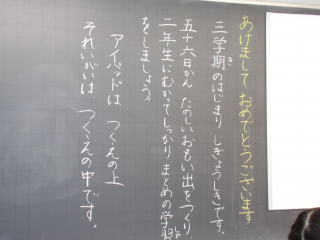 あけまして おめでとうございます
三学期のはじまり しぎょうしきです。
五十六日かん たのしいおもい出をつくり、
二年生にむかってしっかり まとめの学習
をしましょう。
アイパッドは つくえの上
それいがいは つくえの中です。